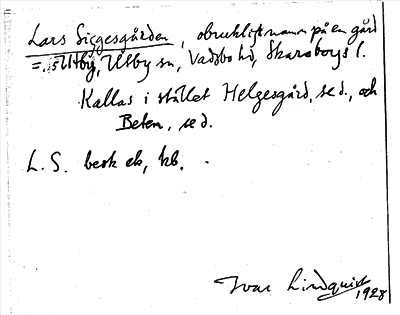 Lars Siggesgården, obrukligt namn på en gård
= Utby, Utby sn, Vadsbo hd, Skaraborgs l.
Kallas i stället Helgesgård, se d., och
Beten, se d.
L. S. besk ek, kb.
Ivar Lindquist
1928